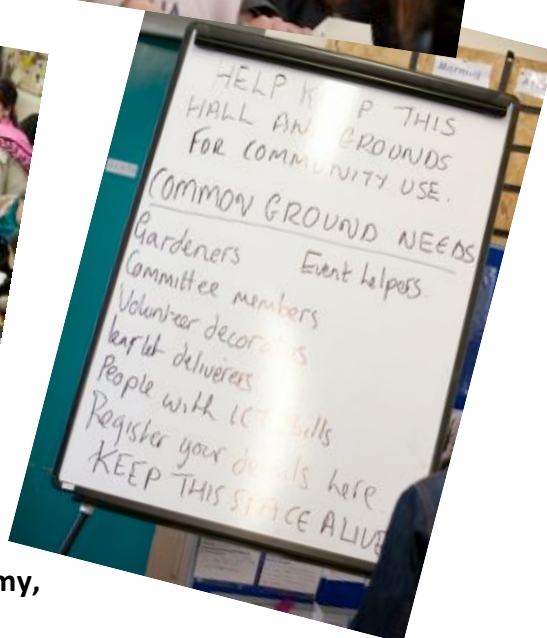 HELP KEEP THIS
HALL AND GROUNDS
FOR COMMUNITY USE.
COMMON GROUND NEEDS
Gardeners Event helpers
Committee members
Volunteer decorators
leaflet deliverers
People with ICT skills
Register your details here
KEEP THIS SPACE ALIVE
my,